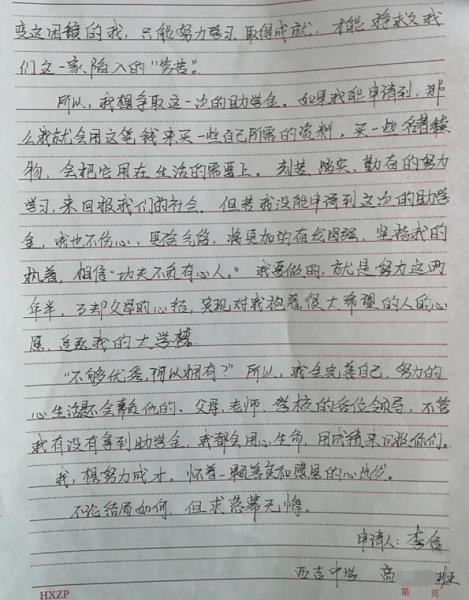 变这困境的我，只能努力学习，取得成就，才能拯救我
们这一家陷入的"劳苦"。
所以，我想争取这一次的助学金。如果我能申请到，那
么我就会用这笔钱来买一些自己所需的资料，买一些
物，会把它用在生活的需要上。刻苦、踏实、勤奋的努力
学习，来回报我们的社会。但若我没能申请到这次的助学
金，我也不伤心，更会气馁，将更加的奋发图强，坚持我的
执着，相信"功夫不负有心人。"我要做的，就是努力这两
年半，了却父母的心结，实现对我抱着很大希望的人的心
愿，追逐我的大学梦。
"不够优秀，何以拥有？"所以，我会完善自己，努力的
心生活是会的。父母、老师、学校的各位领导，不管
我有没有拿到助学金，我都会用心生命，用成绩来回报你们。
我，想努力成才。怀着一颗善良和感恩的心
不论结局如何，但求落幕无悔。
申请人：李
西吉中学 高 班
HXZP 第 页